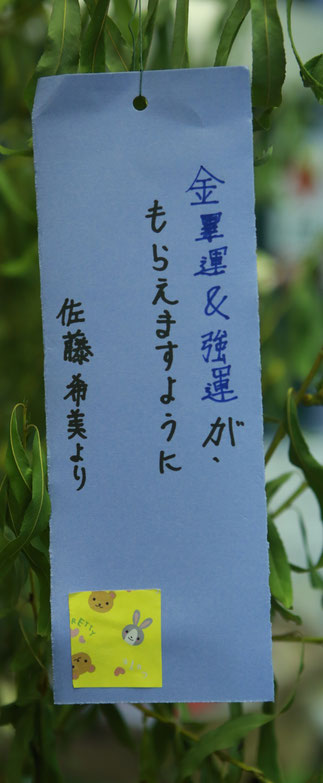 金畢運&強運が、
もらえますように
佐藤希美より